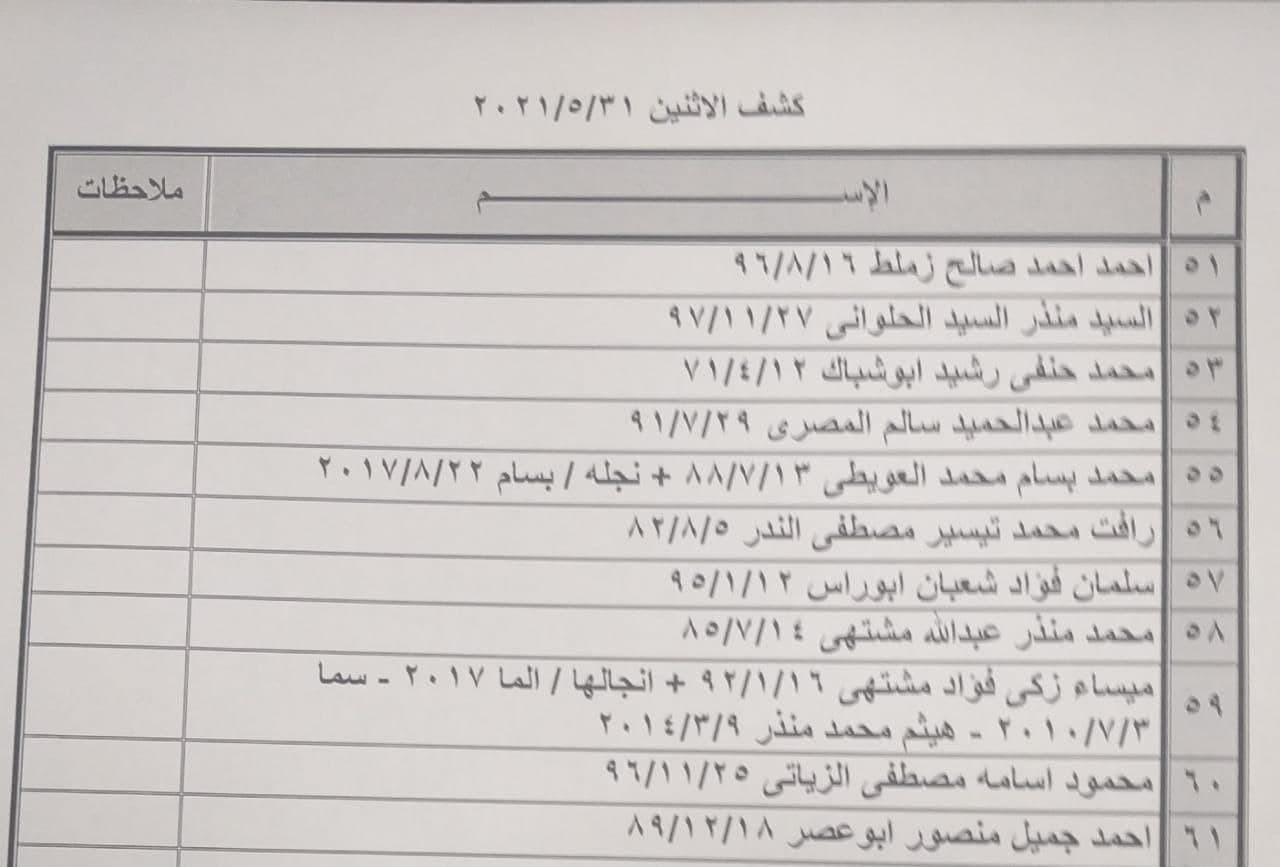 كشف الاثنين ٢٠٢١/٥/٣١
م الإســـــــــــــــــــم ملاحظات
٥١ احمد احمد صالح زملط ٩٦/٨/١٦
٥٢ السيد منذر السيد الحلوانى ٩٧/١١/٢٧
٥٣ محمد حنفى رشيد ابوشباك ٧١/٤/١٢
٥٤ محمد عبدالحميد سالم المصرى ٩١/٧/٢٩
٥٥ محمد بسام محمد العويطى ٨٨/٧/١٣ + نجله / بسام ٢٠١٧/٨/٢٢
٥٦ رافت محمد تيسير مصطفى الندر ٨٢/٨/٥
٥٧ سلمان فؤاد شعبان ابوراس ٩٥/١/١٢
٥٨ محمد منذر عبدالله مشتهى ٨٥/٧/١٤
٥٩ ميساء زكى فؤاد مشتهى ٩٢/١/١٦ + انجالها / الما ٢٠١٧ - سما
٢٠١٠/٧/٣ - هيثم محمد منذر ٢٠١٤/٣/٩
٦٠ محمود اسامه مصطفى الزياتى ٩٦/١١/٢٥
٦١ احمد جميل منصور ابوعصر ٨٩/١٢/١٨